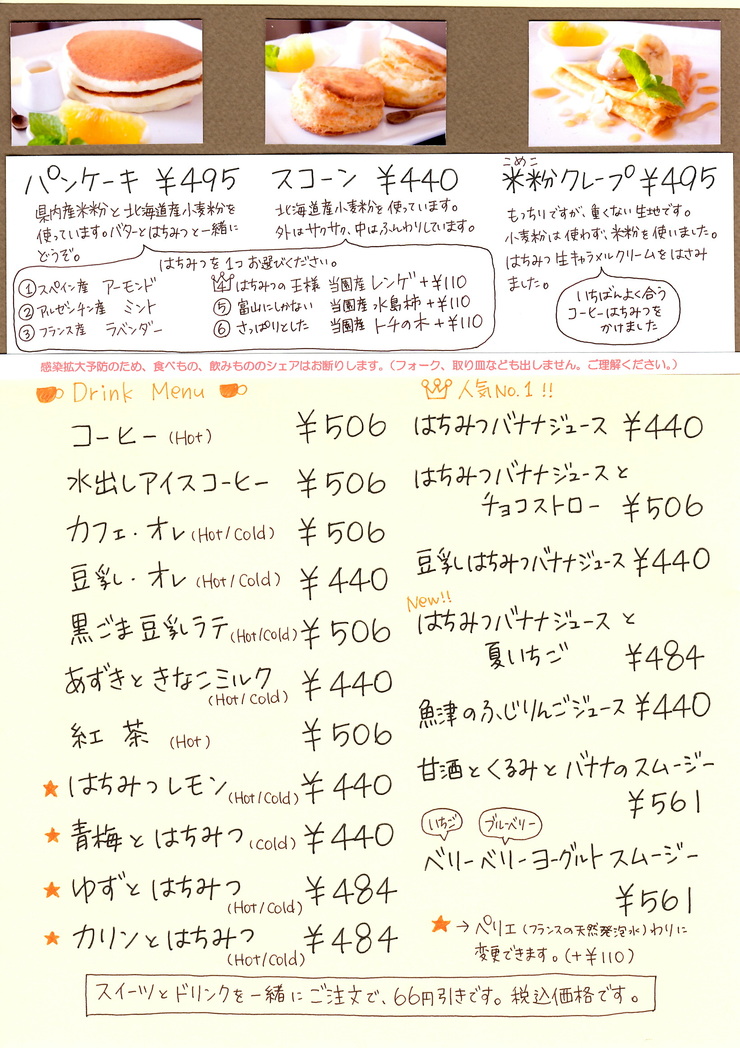 パンケーキ ¥495
県内産米粉と北海道産小麦粉を
使っています。バターとはちみつと一緒に
どうぞ。
スコーン ¥440
北海道産小麦粉を使っています。
外はサクサク、中はふんわりしています。
こめこ
米粉クレープ ¥495
もっちりですが、重くない生地です。
小麦粉は使わず、米粉を使いました。
はちみつ生キャラメルクリームをはさみ
ました。
いちばんよく合う
コーヒーはちみつを
かけました
はちみつを1つお選びください。
① スペイン産 アーモンド
② アルゼンチン産 ミント
③ フランス産 ラベンダー
4 はちみつの王様 当園産 レンゲ +¥110
⑤ 富山にしかない 当園産 水島柿 +¥110
⑥ さっぱりとした 当園産 トチの木 +¥110
感染拡大予防のため、食べもの、飲みもののシェアはお断りします。(フォーク、取り皿なども出しません。ご理解ください。)
Drink Menu
コーヒー (Hot) ¥506
水出しアイスコーヒー ¥506
カフェ・オレ (Hot/Cold) ¥506
豆乳・オレ (Hot/Cold) ¥440
黒ごま豆乳ラテ (Hot/Cold) ¥506
あずきときなこミルク ¥440
(Hot/Cold)
紅茶 (Hot) ¥506
★ はちみつレモン (Hot/Cold) ¥440
★ 青梅とはちみつ (Cold) ¥440
★ ゆずとはちみつ ¥484
(Hot/Cold)
★ カリンとはちみつ ¥484
(Hot/Cold)
人気No.1!!
はちみつバナナジュース ¥440
はちみつバナナジュースと
チョコストロー ¥506
豆乳はちみつバナナジュース ¥440
New!!
はちみつバナナジュースと
夏いちご ¥484
魚津のふじりんごジュース ¥440
甘酒とくるみとバナナのスムージー
¥561
いちご ブルーベリー
ベリーベリーヨーグルトスムージー
¥561
★ → ペリエ (フランスの天然発泡水) わりに
変更できます。(+¥110)
スイーツとドリンクを一緒にご注文で、66円引きです。税込価格です。